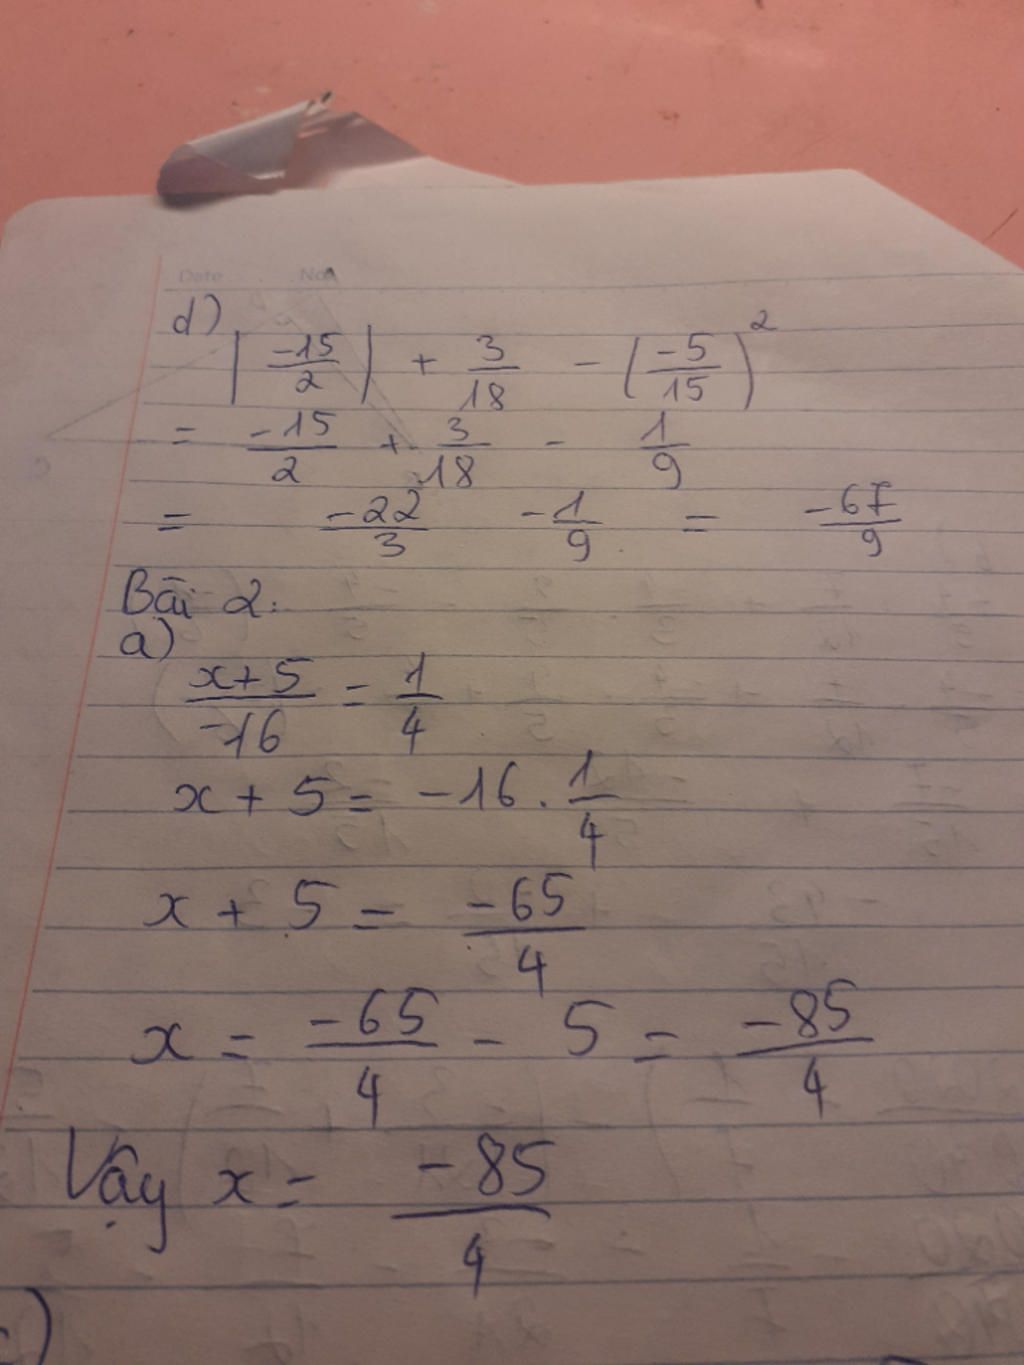 Date No.
d)
|\frac{-15}{2}| + \frac{3}{18} - (\frac{-5}{15})^2
= \frac{-15}{2} + \frac{3}{18} - \frac{1}{9}
= \frac{-22}{3} - \frac{1}{9} = \frac{-67}{9}
Bài 2:
a)
\frac{x+5}{-16} = \frac{1}{4}
x + 5 = -16 . \frac{1}{4}
x + 5 = \frac{-65}{4}
x = \frac{-65}{4} - 5 = \frac{-85}{4}
Vậy x = \frac{-85}{4}